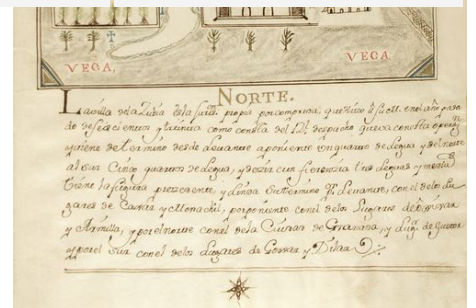 VEGA,
VEGA.
NORTE.
La villa de la Zubia es la suia propia por compra, que hizo á su M. en el año pasa
do de seiscientos y treinta como consta del despacho que va con esta
y tiene de termino desde levante a poniente un quarto de legua, y del norte
al sur Cinco quartos de legua, y de circunferenzia tres leguas y media
tiene la figura presente, y linda su termino por levante, con el de los lu
gares de Caxar y Monachil, por poniente con el de los lugares de
y Armilla, y por el norte con el de la Ciudad de Granada, y lugr. de Huetor
y por el sur con el de los Lugares de Goxar, y Dilar